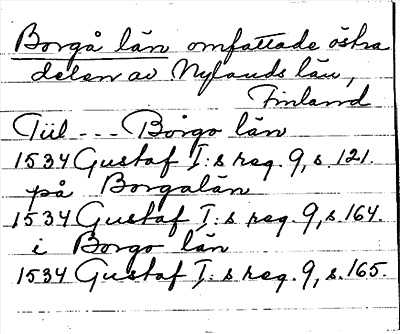 Borgå län omfattade östra
delen av Nylands län,
Finland
Tiil --- Borgo län
1534 Gustaf I:s reg. 9, s. 121.
på Borgalän
1534 Gustaf I:s reg. 9, s. 164.
i Borgo län
1534 Gustaf I:s reg. 9, s. 165.